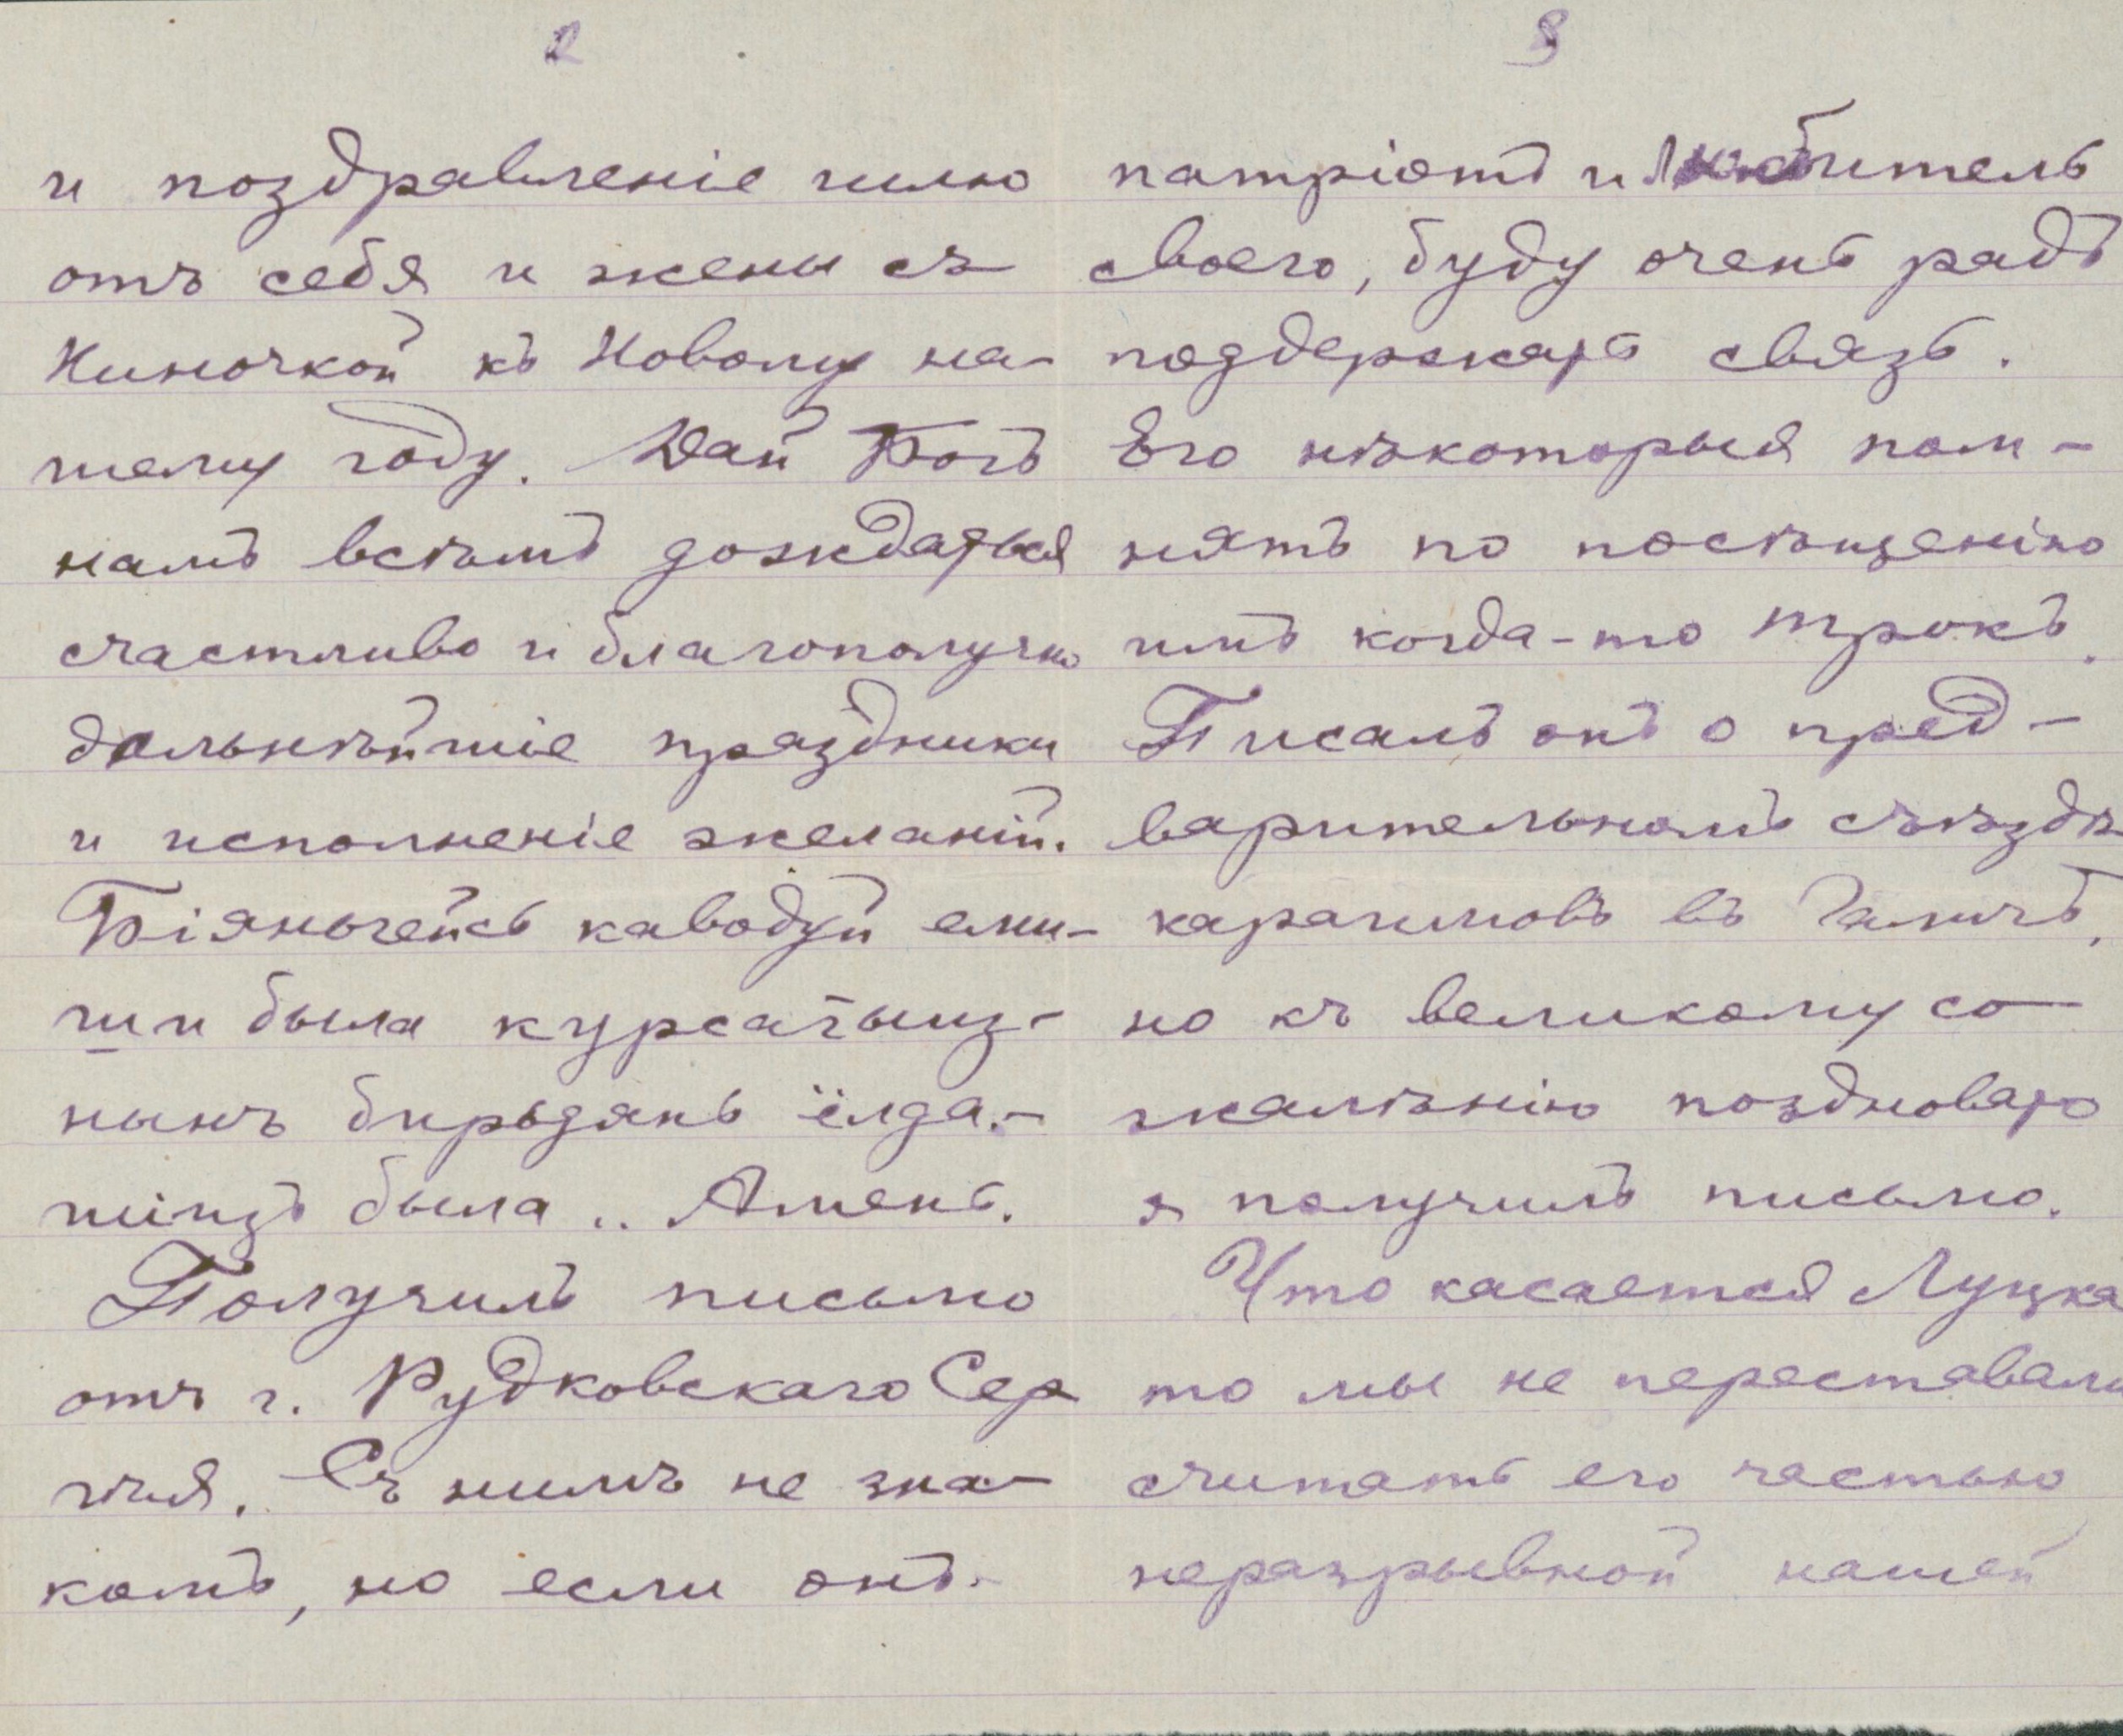 2
и поздравленіе шлю
отъ себя и жены съ
Ниночкой къ Новому на-
шему году. Дай Богъ
намъ всѣмъ дождаться
счастливо и благополучно
дальнѣйшіе праздники
и исполненіе желаній.
Біяньгейсь каводуй еми-
ши была курсатыиз-
нынъ бирьдянь ёлда-
шизъ была .. Аменъ.
Получилъ письмо
отъ г. Рудковскаго Сер
гѣя. Съ нимъ не зна-
комъ, но если онъ
3
патріотъ и любитель
своего, буду очень радъ
поддержать связь.
Его нѣкоторыя пом-
нятъ по посѣщенію
имъ когда-то Трокъ.
Писалъ онъ о пред-
варительномъ съѣздѣ
караимовъ въ Галичѣ,
но къ великому со-
жалѣнію поздновато
я получилъ письмо.
Что касается Луцка
то мы не переставали
считать его частью
неразрывной нашей